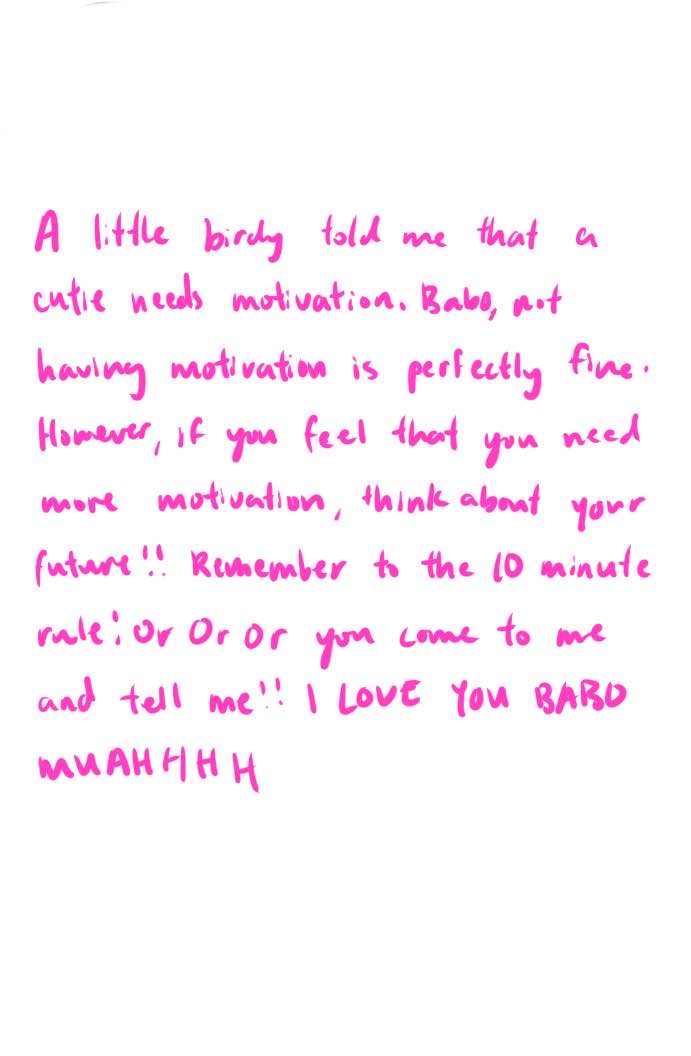 A little birdy told me that a
cutie needs motivation. Babo, not
having motivation is perfectly fine.
However, if you feel that you need
more motivation, think about your
future!! Remember to the 10 minute
rule! Or Or Or you come to me
and tell me!! I LOVE YOU BABO
MUAHHHH